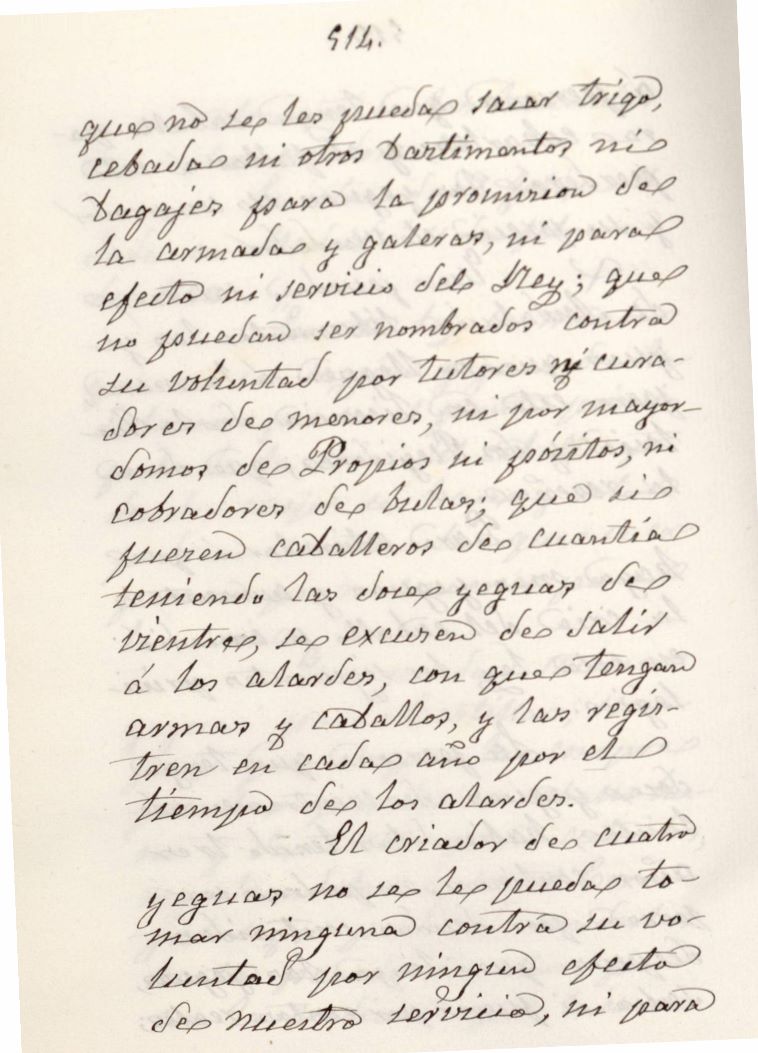 514.
que no se les pueda sacar trigo,
cebada ni otros bastimentos ni
bagajes para la provision de
la armada y galeras, ni para
efecto ni servicio del Rey; que
no puedan ser nombrados contra
su voluntad por tutores ni cura-
dores de menores, ni por mayor-
domos de Propios ni pósitos, ni
cobradores de bulas; que si
fueren caballeros de cuantía
teniendo las doce yeguas de
vientre, se excusen de salir
á los alardes, con que tengan
armas y caballos, y las regis-
tren en cada año por el
tiempo de los alardes.
El criador de cuatro
yeguas no se le pueda to-
mar ninguna contra su vo-
luntad por ningun efecto
de nuestro servicio, ni para